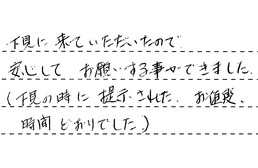 下見に来ていただいたので
安心してお願いする事ができました。
(下見の時に提示された、お値段、
時間どおりでした)